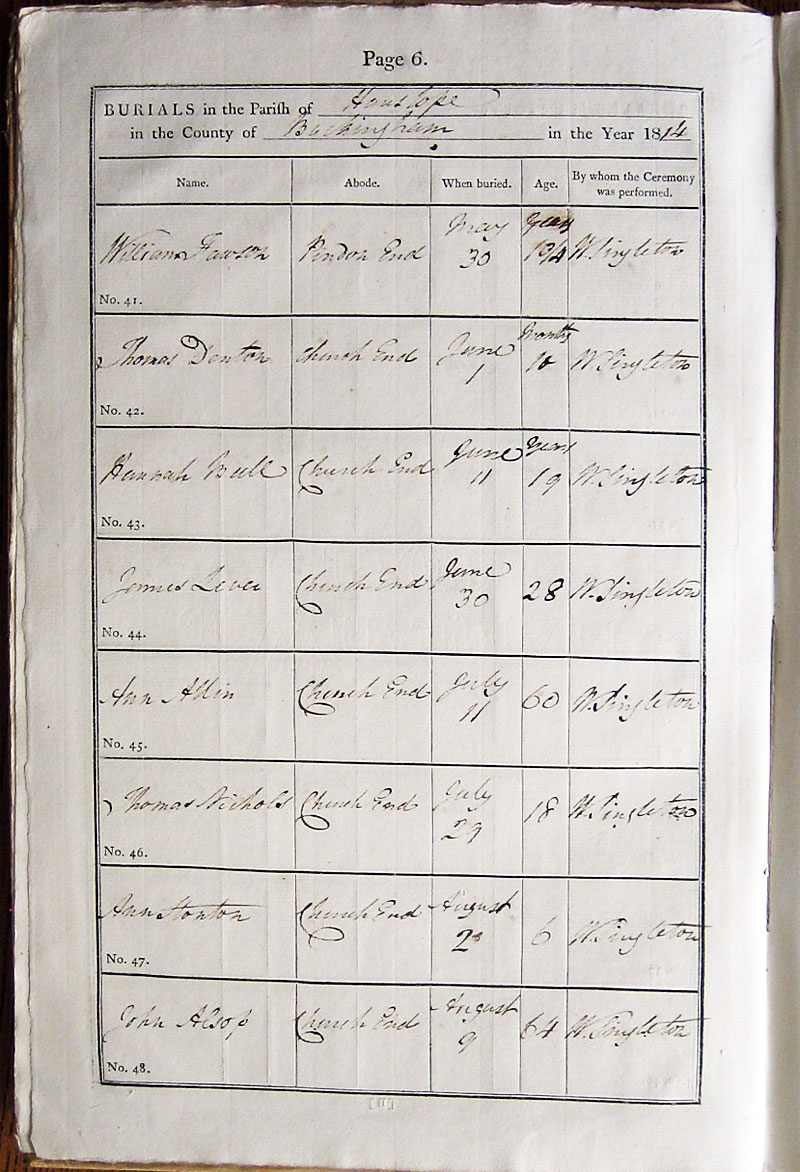 Page 6.
BURIALS in the Parish of Hanslope
in the County of Buckingham in the Year 1814
Name. Abode. When buried. Age. By whom the Ceremony was performed.
May Years
William Fawson Pindon End 30 1 3/4 W. Singleton
No. 41.
June Months
Thomas Denton Church End 1 10 W. Singleton
No. 42.
June Years
Hannah Church End 11 19 W. Singleton
No. 43.
June
James Church End 30 28 W. Singleton
No. 44.
July
Ann Allin Church End 11 60 W. Singleton
No. 45.
July
Thomas Nichols Church End 29 18 W. Singleton
No. 46.
August
Ann Stonton Church End 2 6 W. Singleton
No. 47.
August
John Alsop Church End 9 64 W. Singleton
No. 48.